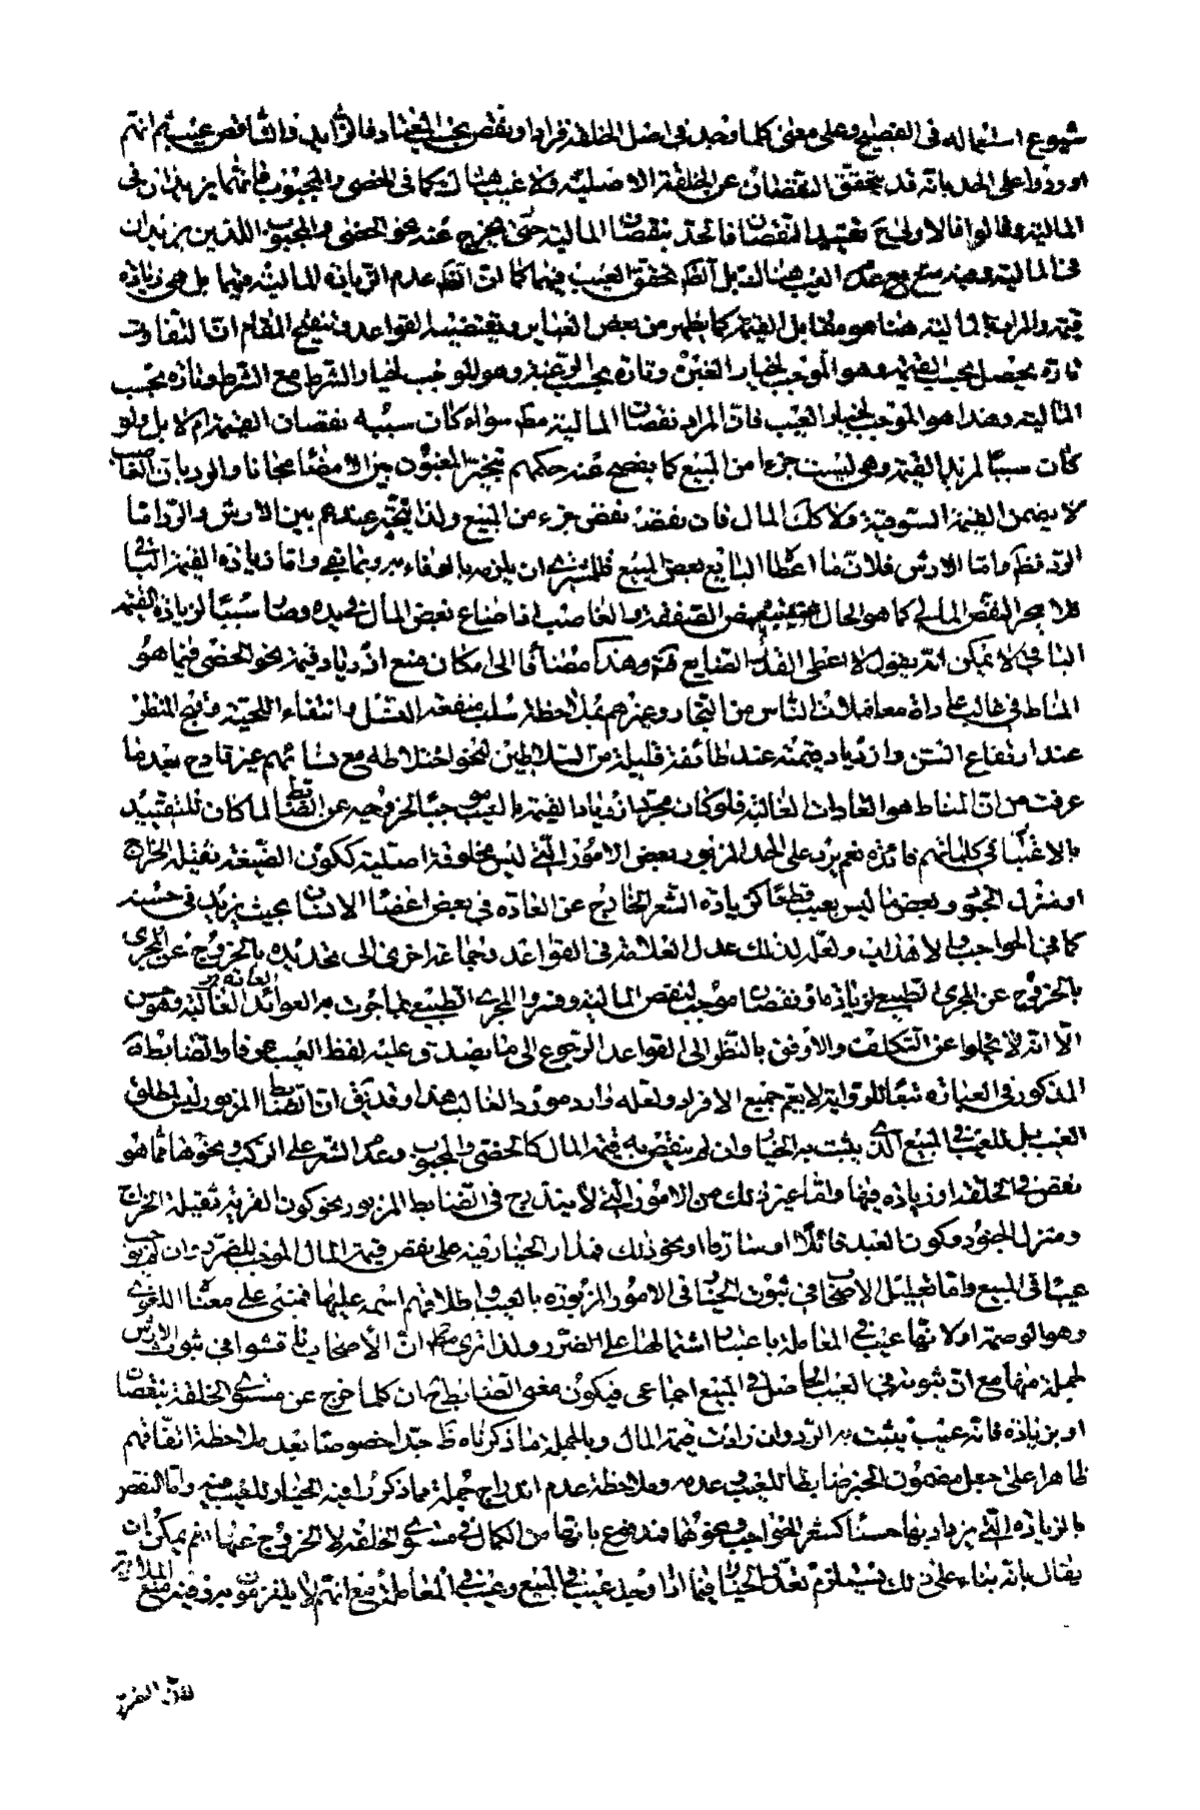 شيوع استعماله في الفصيح وعلى معنى كلما وجد في اصل الخلقة فزاد او نقص بحسب فالزايد والناقص عيب ثم انهم
اوردوا على الحد بانه قد يتحقق النقصان عن الخلقة الاصلية ولا عيب هناك كما في الخصي والمجبوب فانهما يزيدان في
المالية وقالوا فالاولى تقييد النقصان فاتحد بنقصان المالية حتى يخرج عنه نحو الخصي والمجبوب اللذين يزيدان
في المالية وفيه منع عدم العيب هنا لك بل الظ تحقق العيب فيهما كما ان الظ عدم الزيادة المالية فيهما بل هي زيادة
قيمة والمراد بالمالية هنا هو مقابل القيمة كما يظهر من بعض العبايرو يقتضيه القواعد وتنقيح المقام ان التفاوت
تارة يحصل بحسب القيمة وهو الموجب لخيار الغبن وتارة بحسب الرغبة وهو الموجب لخيار الشرط مع الشرط وتارة بحسب
المالية وهذا هو الموجب لخيار العيب فان المراد نقصان المالية مط سواء كان سببه نقصان القيمة ام لا بل ولو
كان سببا لمزيد القيمة وهي ليست جزءا من المبيع كما يفصح عنه حكمهم بتخير المغبون بين الامضاء مجانا والرد بان الغاصب
لا يضمن القيمة السوقية ولا كك المال فان نقصه نقص جزء من المبيع ولذا يتخير عندهم بين الارش والرد اما
الرد فظ واما الارش فلان ما اعطا البايع بعض المبيع فللمشتري ان يلزمه بالوفاء به وبما بقي واما زيادة القيمة الثابتة
فلا يجبر النقص المالي كما هو الحال في تبعيض الصفقة والغاصب اذا ضاع بعض المال بيده وصار سببا لزيادة القيمة
الباقي لا يمكن انه يقول لا اعطي القدر الضايع قيمة وهذا مضافا الى امكان منع ازدياد قيمة نحو الخصي فيما هو
المناط في غالب عادة معاملات الناس من التجار وغيرهم بملاحظة سلب منفعة النسل وانتفاء اللحية وقبح المنظر
عند ارتفاع السن وازدياد قيمته عند طائفة قليلة من السلاطين لنحو اختلاطه مع نسائهم غير قادح بعد ما
عرفت من ان المناط هو العادات الغالبة فلو كان مجرد ازدياد القيمة بالعيب موجبا لخروجه عن الضابط لما كان للتقييد
بالاغلب في كلماتهم فائدة نعم يرد على الحد المزبور بعض الامور التي ليس مخلوقة اصلية ككون الضيعة ثقيلة الخراج
او منزل الجنود وبعض ما ليس بعيب قطعا كزيادة الشعر الخارج عن العادة في بعض اعضاء الانسان بحيث يزيد في حسنه
كما في الحواجب والاهداب ولعله لذلك عدل العلامة في القواعد وجماعة اخرى الى تحديده بالخروج عن المجرى
بالخروج عن المجرى الطبيعي لزيادة او نقصان موجب لنقص المالية وفسر المجرى الطبيعي بما جرت به العوائد الغالبة وهو حسن
الا انه لا يخلوا عن التكلف والاوفق بالنظر الى القواعد الرجوع الى ما يصدق عليه لفظ العيب عرفا والضابطة
المذكور في العبارة تبعا للرواية لا يعم جميع الافراد ولعله وارد مورد الغالب هذا وقد يق ان الضابط المزبور ليس لمطلق
العيب بل للعيب في المبيع الذي يثبت به الخيار وان لم ينقص به قيمة المال كالخصي والمجبوب وعدم الشعر على الركب ونحوها مما هو
نقص في الخلقة او زيادة فيها واما غير ذلك من الامور التي لا يندرج في الضابط المزبور نحو كون القرية ثقيلة الخراج
ومنزل الجنود وكون العبد قاتلا او سارقا او نحو ذلك فمدار الخيار فيه على نقص قيمة المال الموجب للضرر وان لم يوجب
عيبا في المبيع واما تعليل الاصحاب في ثبوت الخيار في الامور المزبورة بالعيب واطلاقهم اسمه عليها فمبني على معناه اللغوي
وهو الوصمة او لانها عيب في المعاملة باعتبار اشتمالها على الضرر ولذا نرى ان الاصحاب ناقشوا في ثبوت الارش
لجملة منها مع ان ثبوته في العيب الحاصل في المبيع اجماعي فيكون معنى الضابط ح ان كلما خرج عن مستوى الخلقة بنقصان
او بزيادة فانه عيب يثبت به الرد وان زادت قيمة المال وبالجملة ما ذكرناه ظ جدا خصوصا بعد ملاحظة اتفاقهم
ظاهرا على جعل مضمون الخبر ضابطا للعيب وعدمه وملاحظة عدم اندراج جملة مما ذكروا فيه الخيار للعيب فيه واما النقص
بالزيادة التي يزيد بها حسنا كشعر الحواجب ونحوهما فمدفوع بانها من الكمال في مستوى الخلقة لا الخروج عنها نعم يمكن ان
يقال بانه بناء على ذلك فيستلزم تعدد الخيار فيما اذا وجد عيب في المبيع وعيب في المعاملة مع انهم لا يلتزمون به وفيه منع الملازمة
لان الضرر